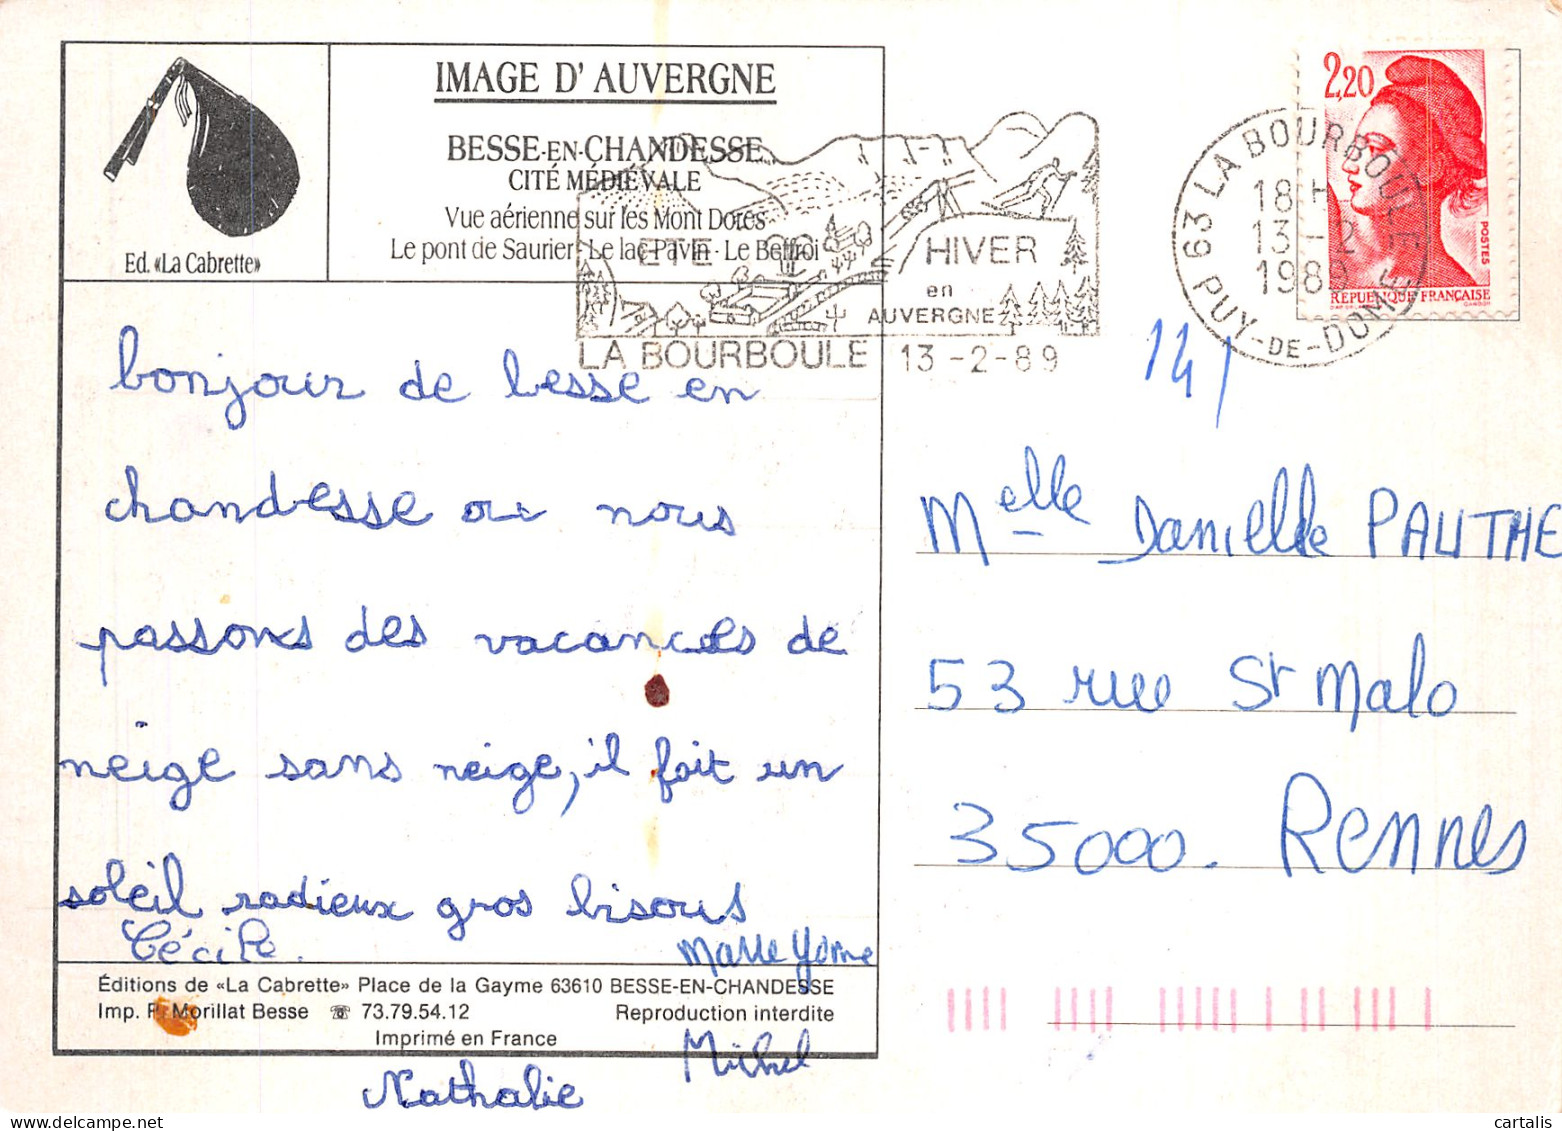 IMAGE D'AUVERGNE
BESSE-EN-CHANDESSE
CITÉ MÉDIÉVALE
Vue aérienne sur les Mont Dores
Le pont de Saurier - Le lac Pavin - Le Beffroi
Ed. «La Cabrette»
ETE
HIVER
en
AUVERGNE
LA BOURBOULE 13-2-89
63 LA BOURBOULE
18H
13-2
1989
PUY-DE-DOME
2,20
POSTES
REPUBLIQUE FRANÇAISE
bonjour de besse en
chandesse ou nous
passons des vacances de
neige sans neige, il fait un
soleil radieux gros bisous
Cécile.
Marie Yvonne
Michel
Nathalie
Melle Danielle PAUTHE
53 rue St Malo
35000. Rennes
Éditions de «La Cabrette» Place de la Gayme 63610 BESSE-EN-CHANDESSE
Imp. P. Morillat Besse ☎ 73.79.54.12 Reproduction interdite
Imprimé en France
cartalis